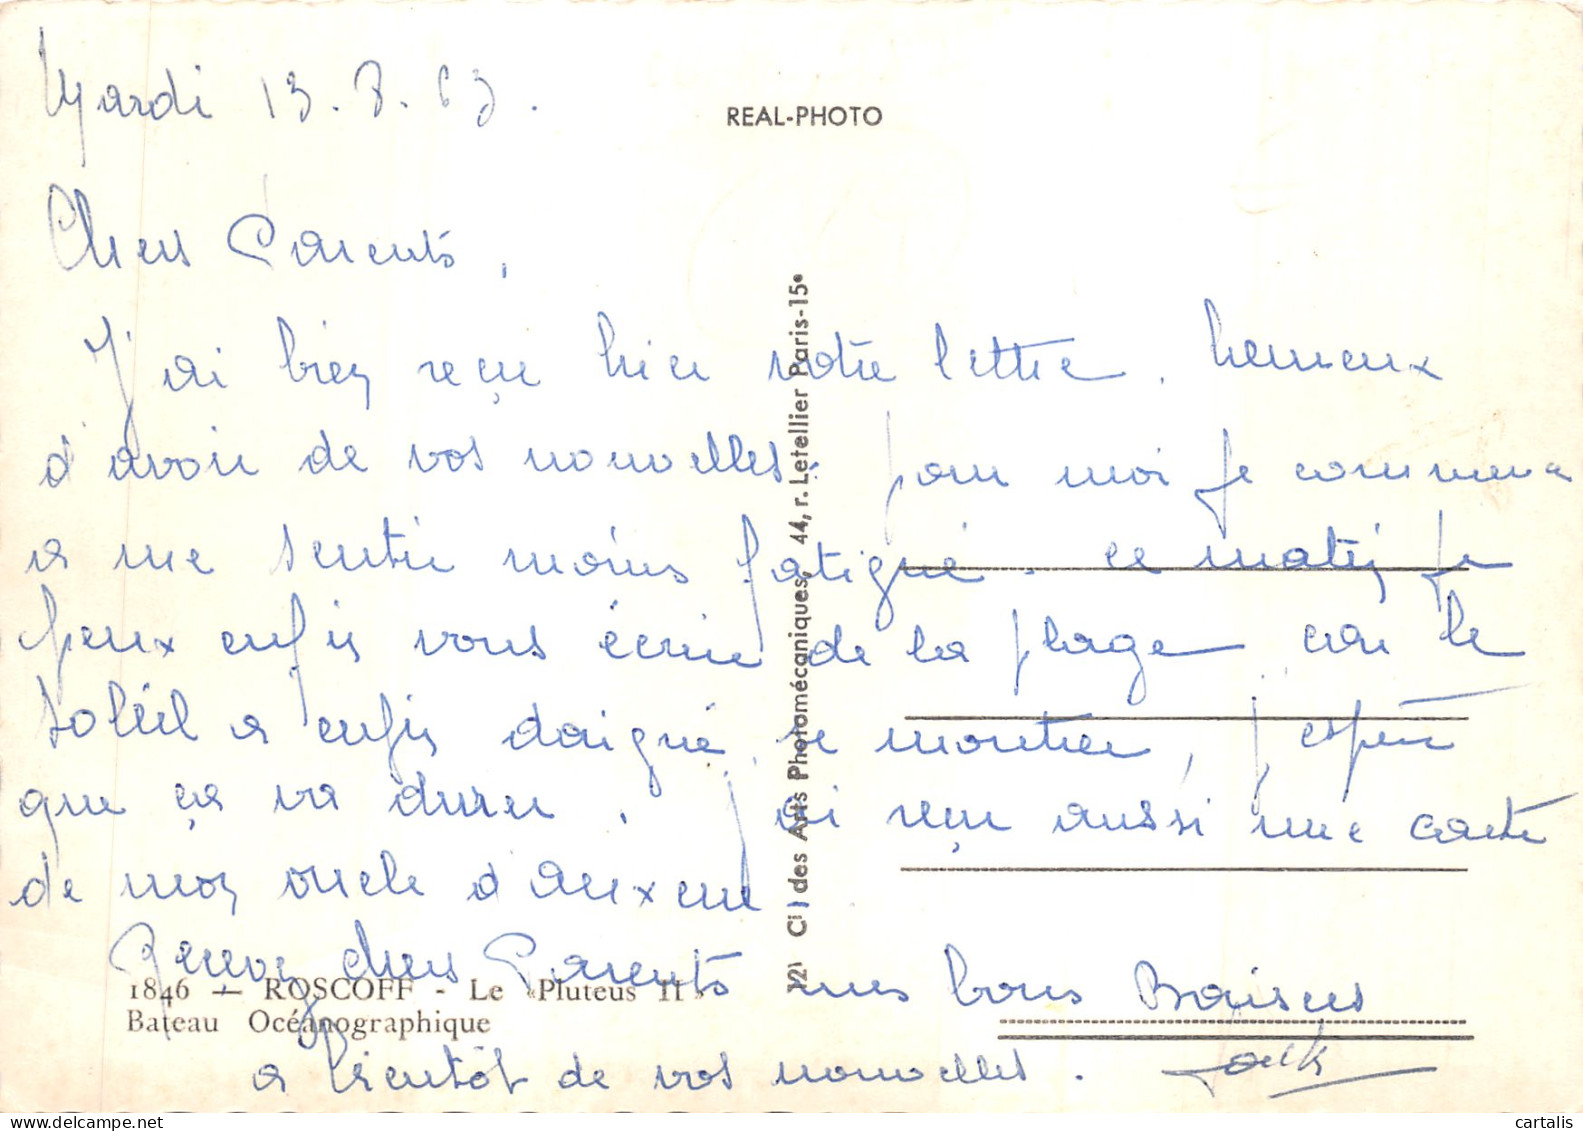 Mardi 13.8.63.
REAL-PHOTO
Chers Parents,
J'ai bien reçu hier votre lettre. heureux
d'avoir de vos nouvelles. pour moi je commence
a me sentir moins fatigué. ce matin je
peux enfin vous écrire de la plage car le
soleil a enfin daigné se montrer, j'espère
que ça va durer. J'ai reçu aussi une carte
de mon oncle d'auxerre
Recevez chers Parents mes bons Baisers
a bientôt de vos nouvelles. Jack
1846 — ROSCOFF - Le «Pluteus II»
Bateau Océanographique
Cie des Arts Photomécaniques, 44, r. Letellier Paris-15e
cartalis